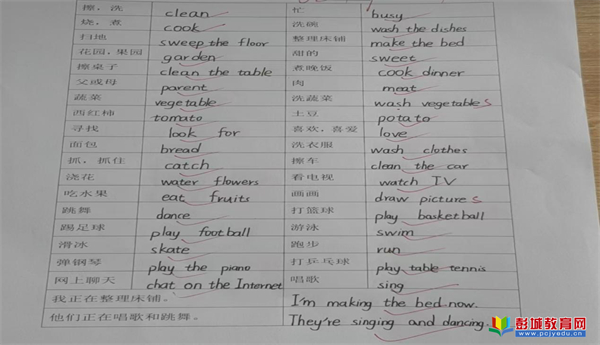 擦，洗 clean 忙 busy
烧，煮 cook 洗碗 wash the dishes
扫地 sweep the floor 整理床铺 make the bed
花园，果园 garden 甜的 sweet
擦桌子 clean the table 煮晚饭 cook dinner
父或母 parent 肉 meat
蔬菜 vegetable 洗蔬菜 wash vegetables
西红柿 tomato 土豆 potato
寻找 look for 喜欢，喜爱 love
面包 bread 洗衣服 wash clothes
抓，抓住 catch 擦车 clean the car
浇花 water flowers 看电视 watch TV
吃水果 eat fruits 画画 draw pictures
跳舞 dance 打篮球 play basketball
踢足球 play football 游泳 swim
滑冰 skate 跑步 run
弹钢琴 play the piano 打乒乓球 play table tennis
网上聊天 chat on the Internet 唱歌 sing
我正在整理床铺。 I'm making the bed now.
他们正在唱歌和跳舞。 They're singing and dancing.
彭城教育网
www.pcjyedu.cn